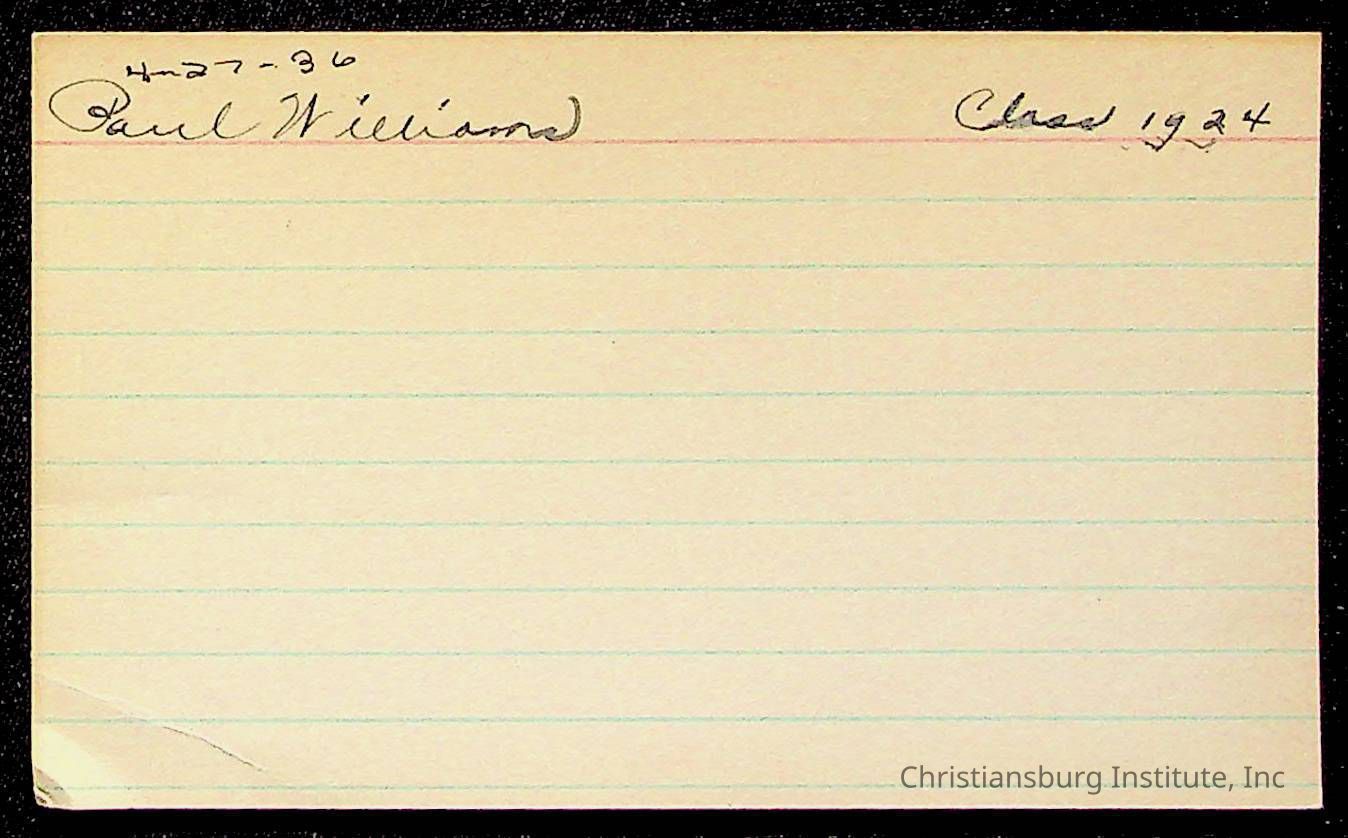 4-27-36
Paul Williams Class 1924
Christiansburg Institute, Inc